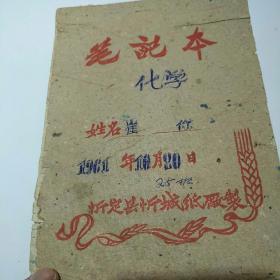 笔记本
化学
姓名 崔 保
1961年10月20日
25班
忻定县忻城纸厰製